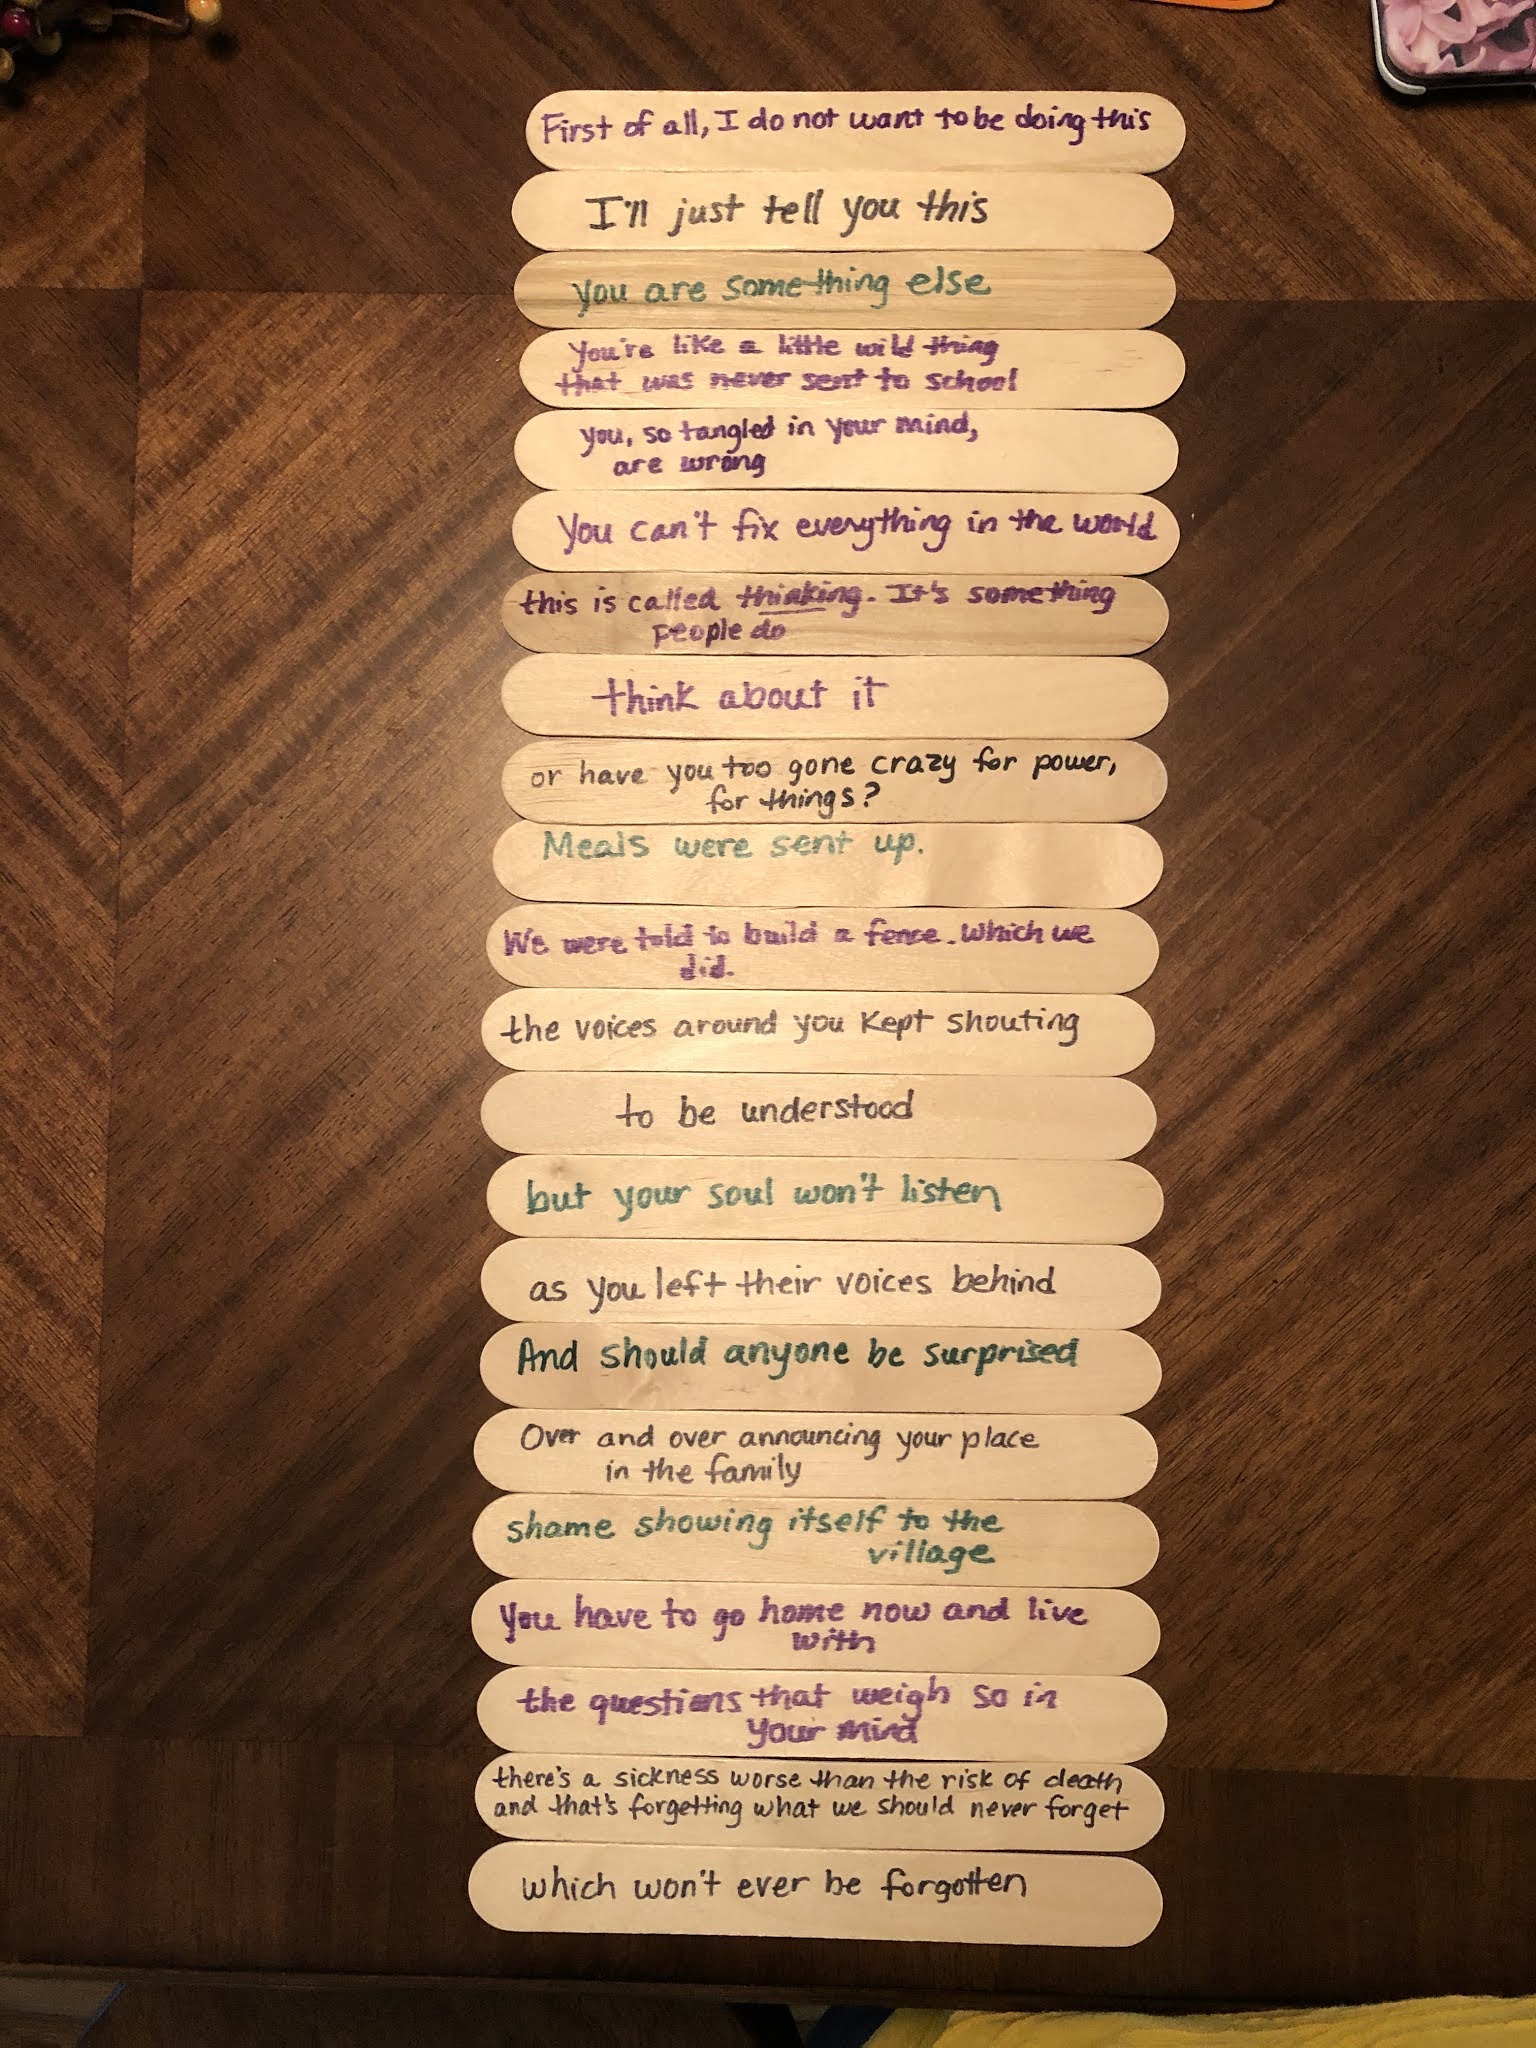 First of all, I do not want to be doing this
I'll just tell you this
you are something else
You're like a little wild thing
that was never sent to school
you, so tangled in your mind,
are wrong
You can't fix everything in the world
this is called thinking. It's something
people do
think about it
or have you too gone crazy for power,
for things?
Meals were sent up.
We were told to build a fence. Which we
did.
the voices around you kept shouting
to be understood
but your soul won't listen
as you left their voices behind
And should anyone be surprised
Over and over announcing your place
in the family
shame showing itself to the
village
you have to go home now and live
with
the questions that weigh so in
your mind
there's a sickness worse than the risk of death
and that's forgetting what we should never forget
which won't ever be forgotten